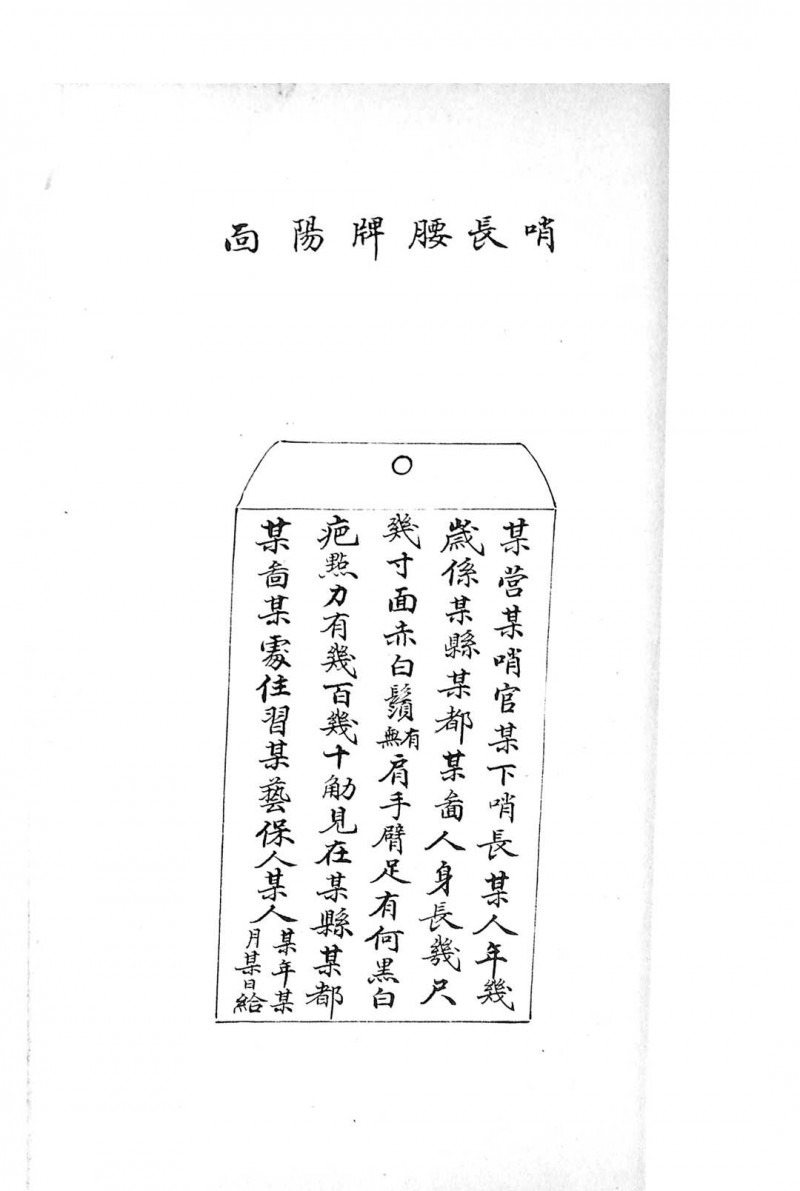 哨長腰牌陽面
某營某哨官某下哨長某人年幾
歲係某縣某都某啚人身長幾尺
幾寸面赤白鬚有無肩手臂足有何黑白
疤點力有幾百幾十觔見在某縣某都
某啚某處住習某藝保人某人某年某月某日給